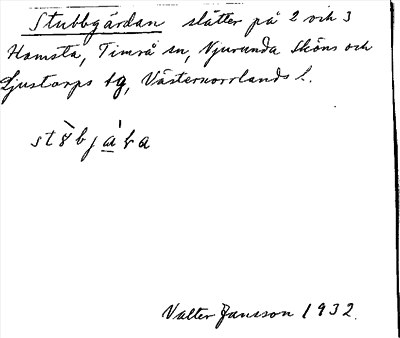 Stubbgärdan slåtter på 2 och 3
Hamsta, Timrå sn, Njurunda Sköns och
Ljustorps tg, Västernorrlands l.
Valter Jansson 1932.